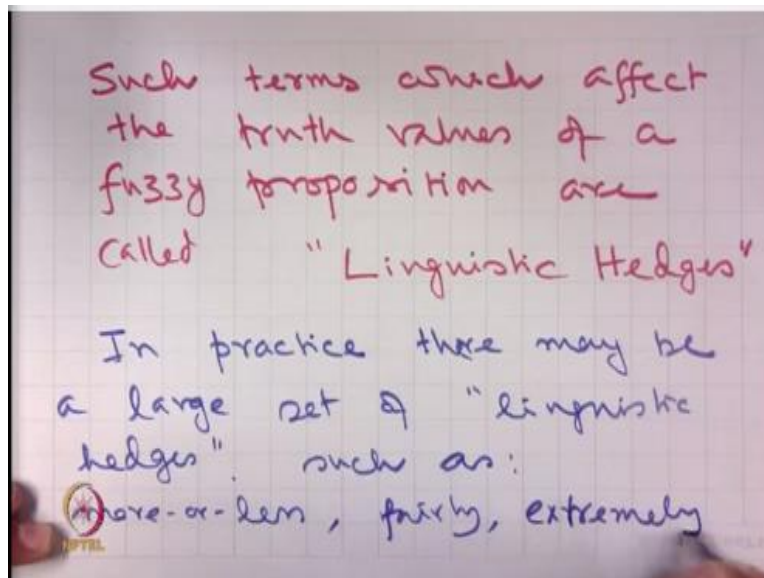 Such terms which affect
the truth values of a
fuzzy proposition are
called "Linguistic Hedges"
In practice there may be
a large set of "linguistic
hedges". such as:
more-or-less, fairly, extremely
NPTEL